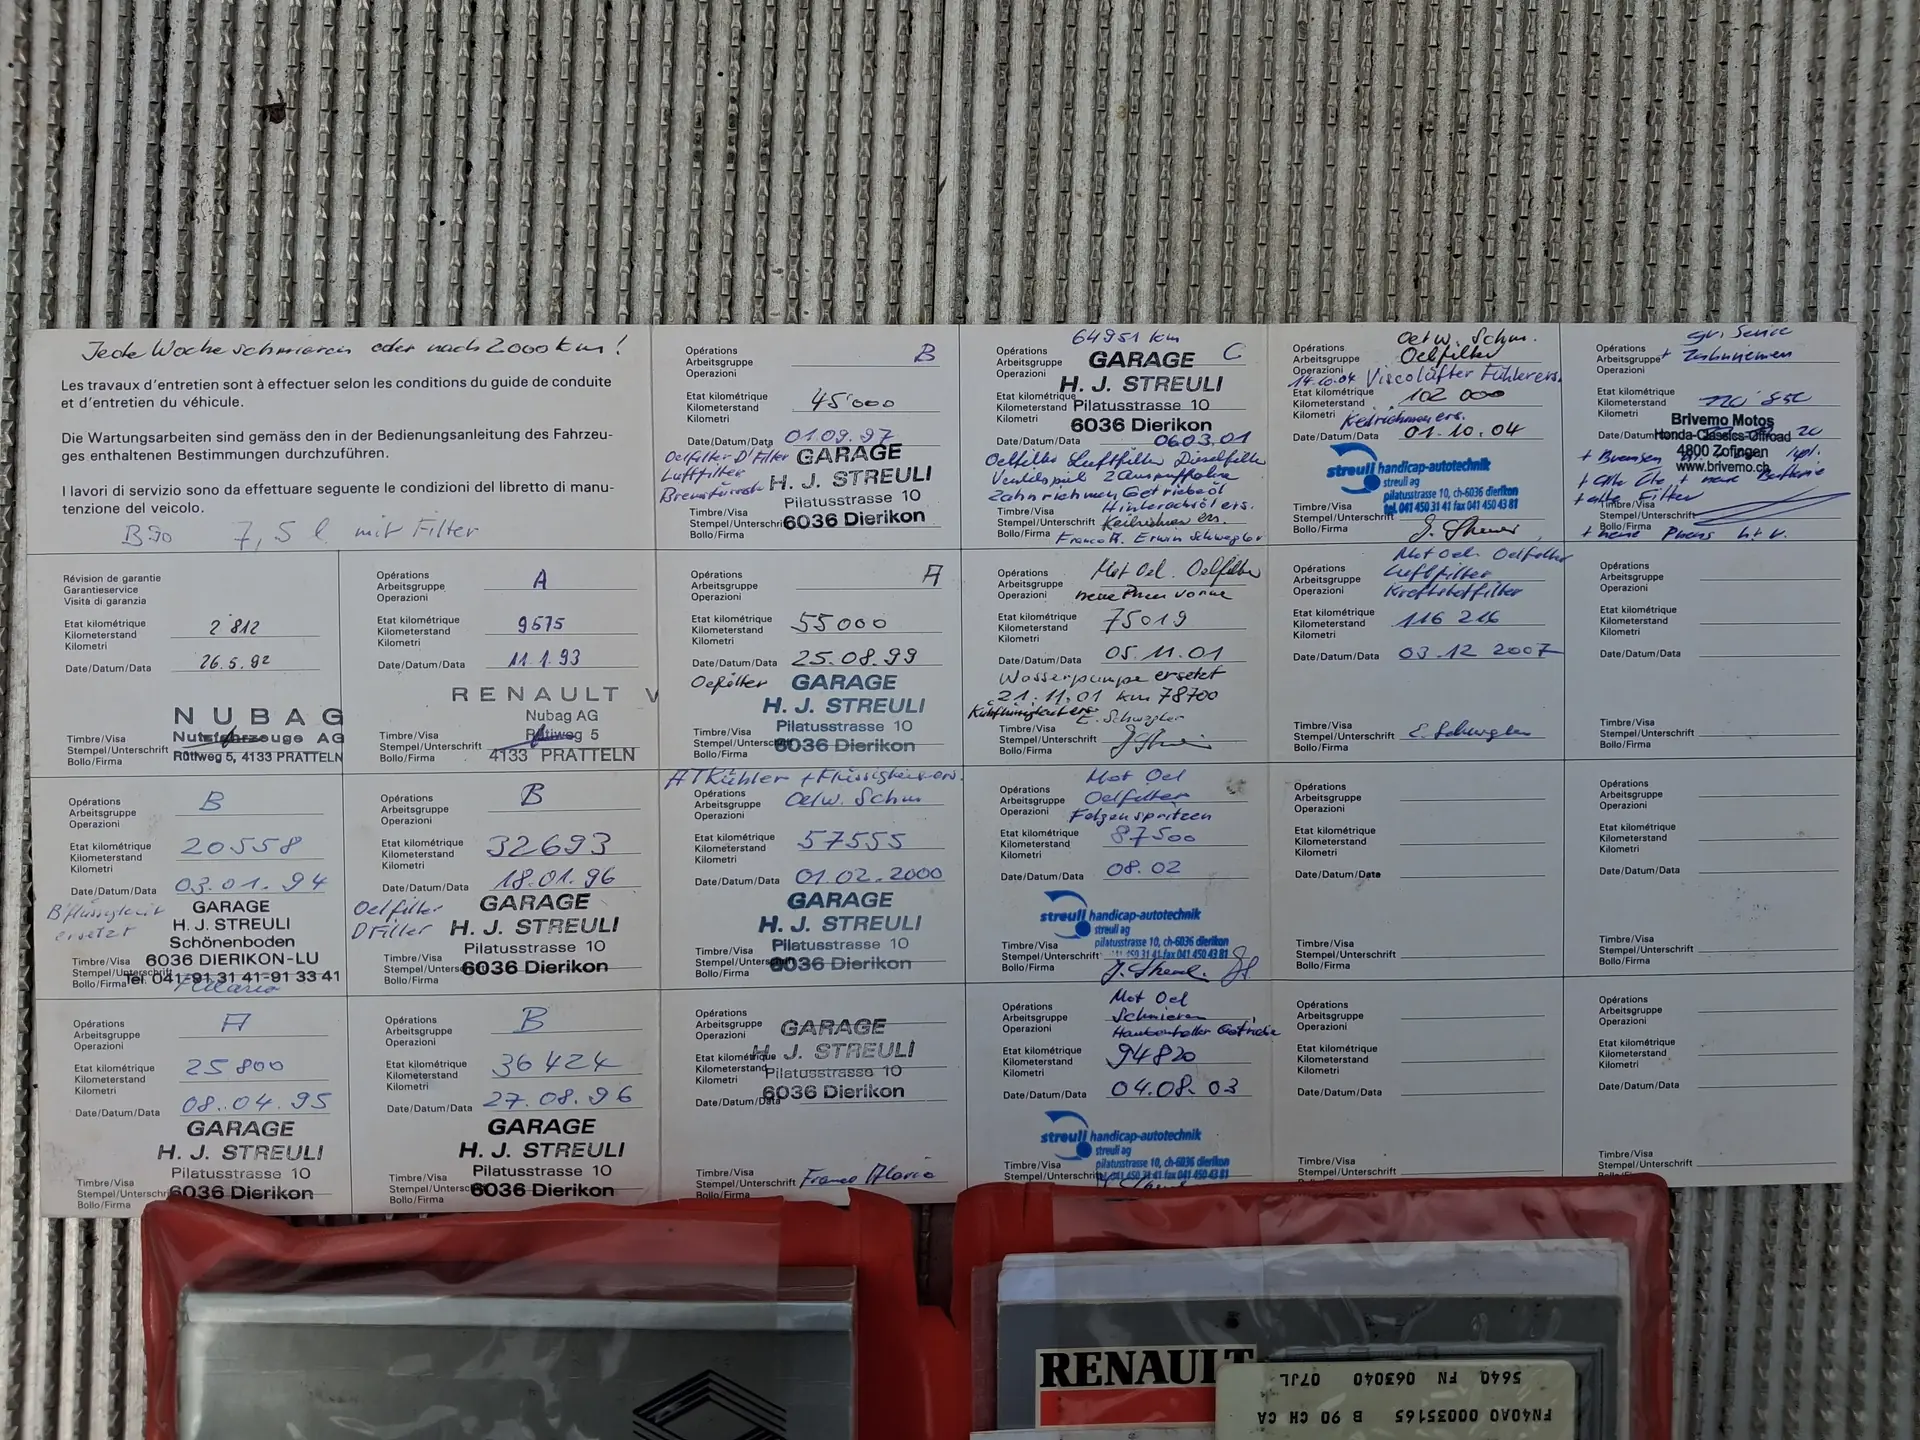 Jede Woche schmieren oder nach 2000 km!
Les travaux d'entretien sont à effectuer selon les conditions du guide de conduite
et d'entretien du véhicule.
Die Wartungsarbeiten sind gemäss den in der Bedienungsanleitung des Fahrzeu-
ges enthaltenen Bestimmungen durchzuführen.
I lavori di servizio sono da effettuare seguente le condizioni del libretto di manu-
tenzione del veicolo.
B90 7,5 l mit Filter
Révision de garantie
Garantieservice
Visità di garanzia
Etat kilométrique
Kilometerstand 2 812
Kilometri
Date/Datum/Data 26.5.92
NUBAG
Nutzfahrzeuge AG
Rütiweg 5, 4133 PRATTELN
Timbre/Visa
Stempel/Unterschrift
Bollo/Firma
Opérations A
Arbeitsgruppe
Operazioni
Etat kilométrique
Kilometerstand 9575
Kilometri
Date/Datum/Data 11.1.93
RENAULT V
Nubag AG
Rütiweg 5
4133 PRATTELN
Timbre/Visa
Stempel/Unterschrift
Bollo/Firma
Opérations B
Arbeitsgruppe
Operazioni
Etat kilométrique
Kilometerstand 20558
Kilometri
Date/Datum/Data 03.01.94
B'flüssigkeit
ersetzt
GARAGE
H. J. STREULI
Schönenboden
6036 DIERIKON-LU
Tel. 041-91 31 41-91 33 41
Timbre/Visa
Stempel/Unterschrift
Bollo/Firma
Opérations B
Arbeitsgruppe
Operazioni
Etat kilométrique
Kilometerstand 32693
Kilometri
Date/Datum/Data 18.01.96
Oelfilter
D Filter
GARAGE
H. J. STREULI
Pilatusstrasse 10
6036 Dierikon
Timbre/Visa
Stempel/Unterschrift
Bollo/Firma
Opérations A
Arbeitsgruppe
Operazioni
Etat kilométrique
Kilometerstand 25800
Kilometri
Date/Datum/Data 08.04.95
GARAGE
H. J. STREULI
Pilatusstrasse 10
6036 Dierikon
Timbre/Visa
Stempel/Unterschrift
Bollo/Firma
Opérations B
Arbeitsgruppe
Operazioni
Etat kilométrique
Kilometerstand 36424
Kilometri
Date/Datum/Data 27.08.96
GARAGE
H. J. STREULI
Pilatusstrasse 10
6036 Dierikon
Timbre/Visa
Stempel/Unterschrift
Bollo/Firma
Opérations B
Arbeitsgruppe
Operazioni
Etat kilométrique
Kilometerstand 45'000
Kilometri
Date/Datum/Data 01.09.97
Oelfilter D'Filter
Luftfilter
GARAGE
H. J. STREULI
Pilatusstrasse 10
6036 Dierikon
Timbre/Visa
Stempel/Unterschrift
Bollo/Firma
Opérations A
Arbeitsgruppe
Operazioni
Etat kilométrique
Kilometerstand 55000
Kilometri
Date/Datum/Data 25.08.99
Oelfilter
GARAGE
H. J. STREULI
Pilatusstrasse 10
6036 Dierikon
Timbre/Visa
Stempel/Unterschrift
Bollo/Firma
AT Kühler + Flüssigkeit ers.
Opérations Oelw. Schm
Arbeitsgruppe
Operazioni
Etat kilométrique
Kilometerstand 57555
Kilometri
Date/Datum/Data 01.02.2000
GARAGE
H. J. STREULI
Pilatusstrasse 10
6036 Dierikon
Timbre/Visa
Stempel/Unterschrift
Bollo/Firma
Opérations
Arbeitsgruppe
Operazioni
GARAGE
H. J. STREULI
Pilatusstrasse 10
6036 Dierikon
Etat kilométrique
Kilometerstand
Kilometri
Date/Datum/Data
Timbre/Visa
Stempel/Unterschrift Franco
Bollo/Firma
64951 km
Opérations C
Arbeitsgruppe
Operazioni
GARAGE
H. J. STREULI
Pilatusstrasse 10
6036 Dierikon
Etat kilométrique
Kilometerstand
Kilometri
Date/Datum/Data 06.03.01
Oelfilter Luftfilter Dieselfilter
Ventilspiel 2 Auspuffrohre
Zahnriehmen Getriebeöl
Hinterachsöl ers.
Keilriehmen ers.
Timbre/Visa
Stempel/Unterschrift
Bollo/Firma Franco A. Erwin Schwegler
Opérations Mot Oel. Oelfilter
Arbeitsgruppe neue Pneu vorne
Operazioni
Etat kilométrique
Kilometerstand 75019
Kilometri
Date/Datum/Data 05.11.01
Wasserpumpe ersetzt
21.11.01 km 78700
Kühlflüssigkeit ers. E. Schwegler
Timbre/Visa
Stempel/Unterschrift
Bollo/Firma
Mot Oel
Opérations Oelfilter
Arbeitsgruppe
Operazioni Felgen spritzen
Etat kilométrique
Kilometerstand 87500
Kilometri
Date/Datum/Data 08.02
streuli handicap-autotechnik
streuli ag
pilatusstrasse 10, ch-6036 dierikon
tel. 041 450 31 41 fax 041 450 43 81
Timbre/Visa
Stempel/Unterschrift
Bollo/Firma
Mot Oel
Opérations Schmieren
Arbeitsgruppe
Operazioni
Etat kilométrique
Kilometerstand 94820
Kilometri
Date/Datum/Data 04.08.03
streuli handicap-autotechnik
streuli ag
pilatusstrasse 10, ch-6036 dierikon
tel. 041 450 31 41 fax 041 450 43 81
Timbre/Visa
Stempel/Unterschrift
Bollo/Firma
Oelw. Schm.
Opérations Oelfilter
Arbeitsgruppe
Operazioni
14.10.04 Viscolüfter Fühler ers.
Etat kilométrique
Kilometerstand 102 000
Kilometri Keilriehmen ers.
Date/Datum/Data 01.10.04
streuli handicap-autotechnik
streuli ag
pilatusstrasse 10, ch-6036 dierikon
tel. 041 450 31 41 fax 041 450 43 81
Timbre/Visa
Stempel/Unterschrift
Bollo/Firma
Mot Oel. Oelfilter
Opérations Luftfilter
Arbeitsgruppe
Operazioni Kraftstoffilter
Etat kilométrique
Kilometerstand 116 216
Kilometri
Date/Datum/Data 03.12 2007
Timbre/Visa
Stempel/Unterschrift E. Schwegler
Bollo/Firma
Opérations
Arbeitsgruppe
Operazioni
Etat kilométrique
Kilometerstand
Kilometri
Date/Datum/Data
Timbre/Visa
Stempel/Unterschrift
Bollo/Firma
Opérations
Arbeitsgruppe
Operazioni
Etat kilométrique
Kilometerstand
Kilometri
Date/Datum/Data
Timbre/Visa
Stempel/Unterschrift
Bollo/Firma
gr. Service
Opérations
Arbeitsgruppe + Zahnriemen
Operazioni
Etat kilométrique
Kilometerstand 120 850
Kilometri
Brivemo Motos
Honda-Classics-Offroad
4800 Zofingen
www.brivemo.ch
Date/Datum/Data 20
+ Bremsen
+ alle Öle + neue Batterie
+ alle Filter
Timbre/Visa
Stempel/Unterschrift
Bollo/Firma
+ neue Pneus h. + v.
Opérations
Arbeitsgruppe
Operazioni
Etat kilométrique
Kilometerstand
Kilometri
Date/Datum/Data
Timbre/Visa
Stempel/Unterschrift
Bollo/Firma
Opérations
Arbeitsgruppe
Operazioni
Etat kilométrique
Kilometerstand
Kilometri
Date/Datum/Data
Timbre/Visa
Stempel/Unterschrift
Bollo/Firma
Opérations
Arbeitsgruppe
Operazioni
Etat kilométrique
Kilometerstand
Kilometri
Date/Datum/Data
Timbre/Visa
Stempel/Unterschrift
Bollo/Firma
RENAULT
FN40A0 00035165 B 90 CH CA
5640 FN 063040 07JL